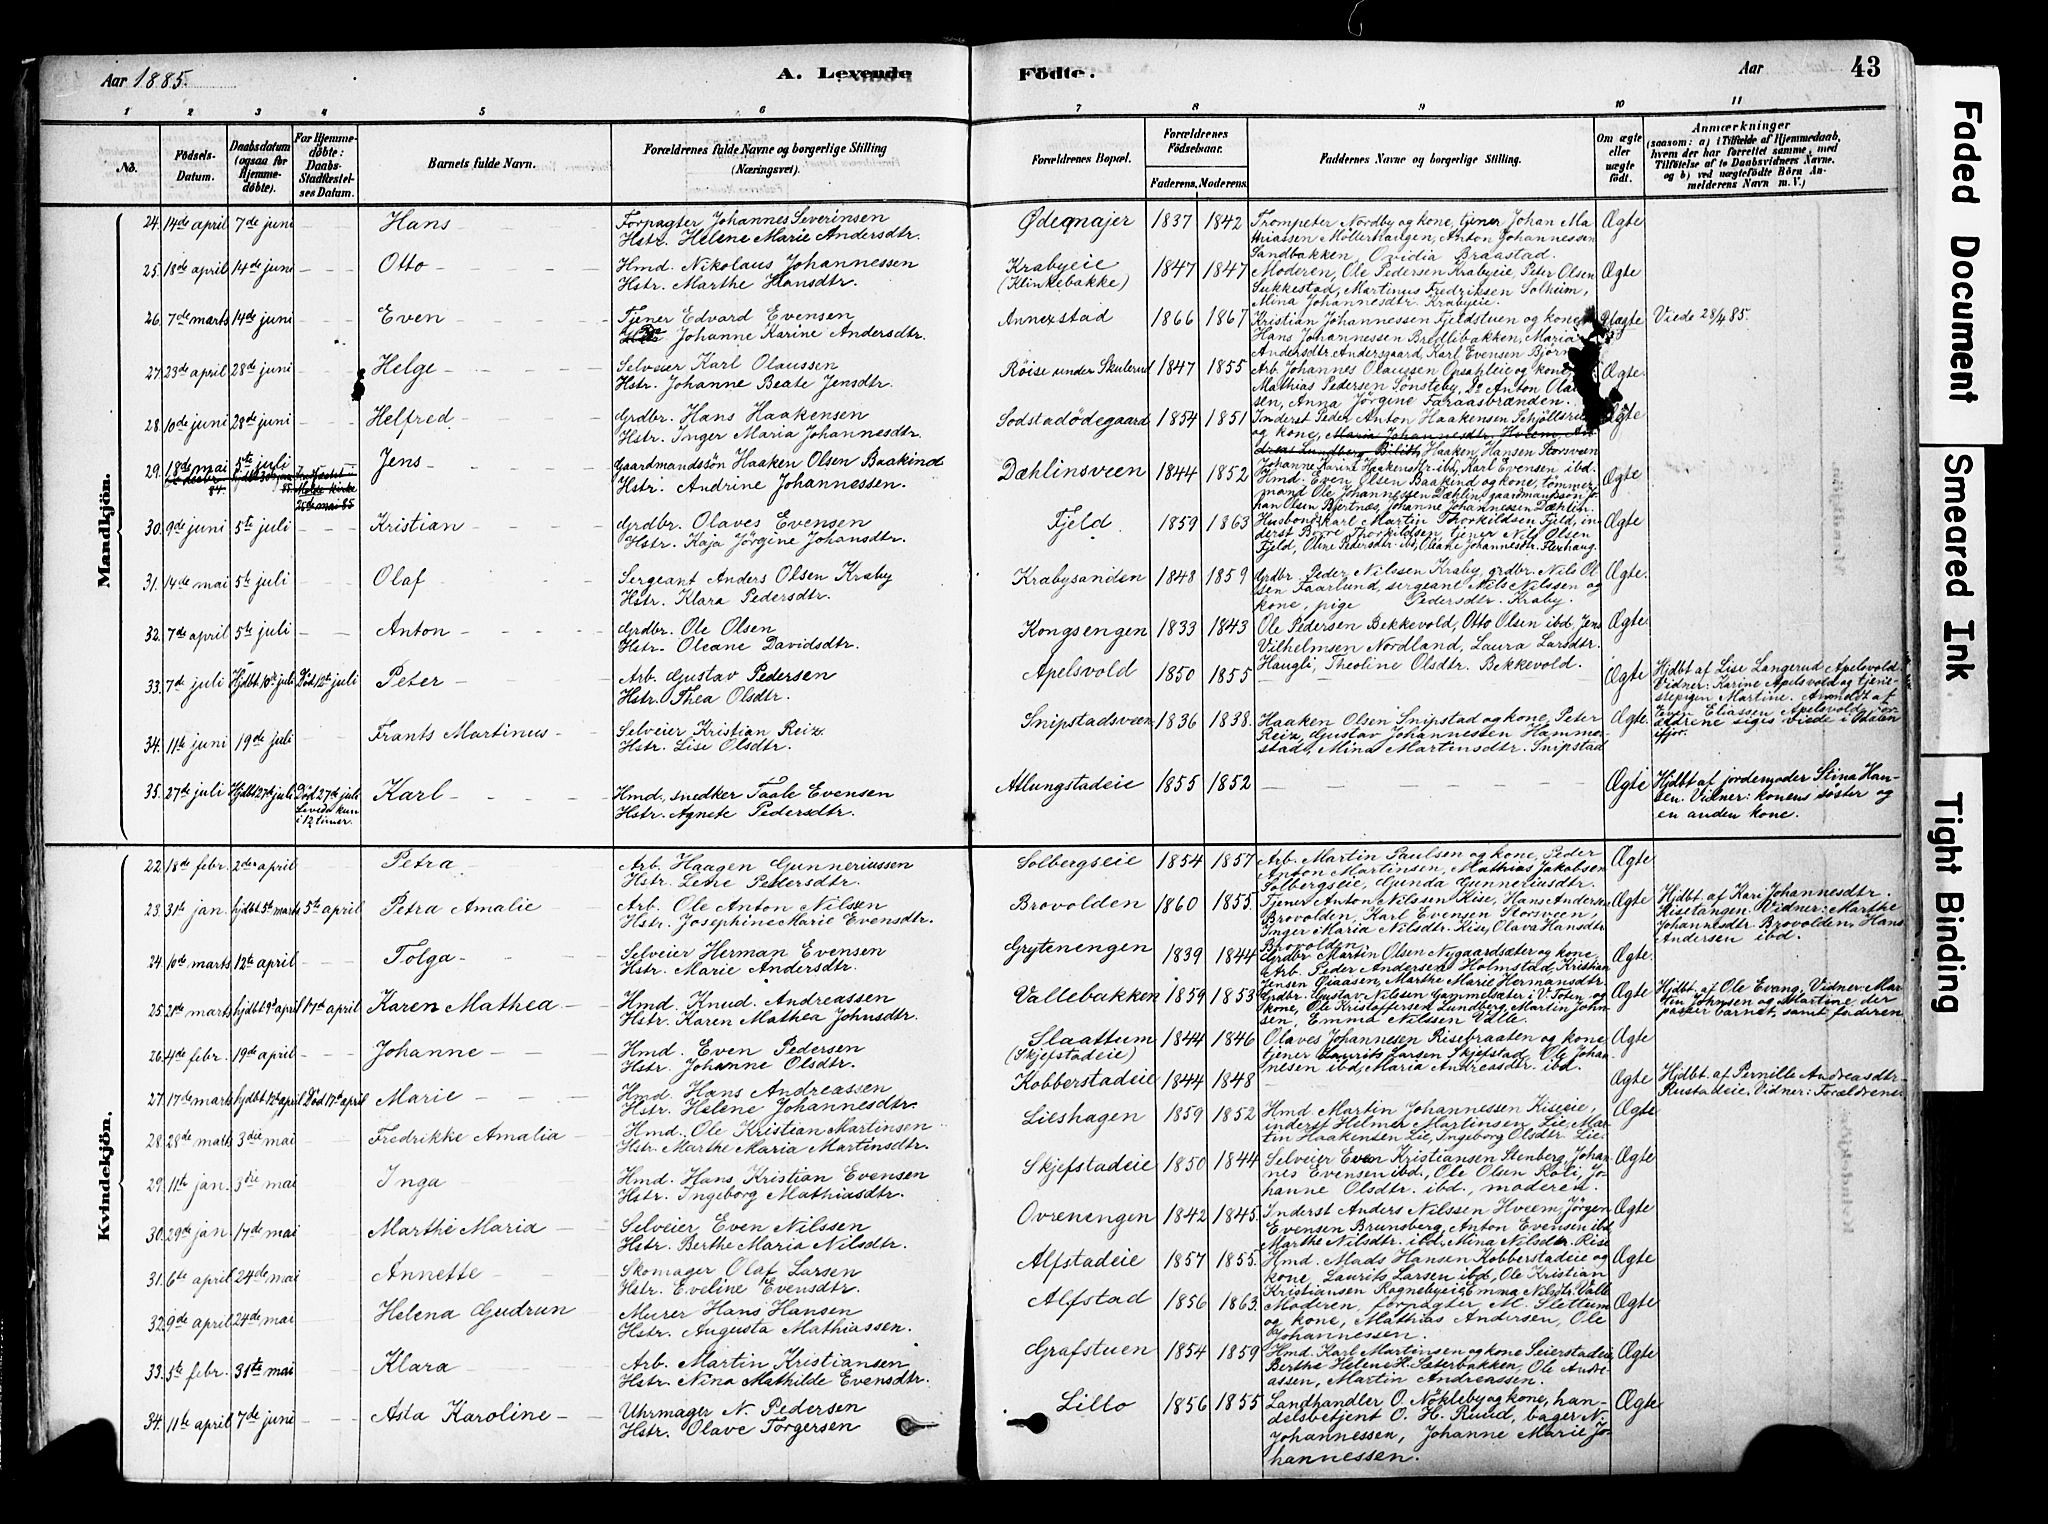 Aar 1885. A. Levende Födte. Aar 43
1 2 3 4 5 6 7 8 9 10 11
No. Födsels-Datum. Daabsdatum (ogsaa for Hjemmedøbte). For Hjemmedøbte: Daabs-Stadfæstelses Datum. Barnets fulde Navn. Forældrenes fulde Navne og borgerlige Stilling (Næringsvei). Forældrenes Bopæl. Forældrenes Födselsaar. Faderens. Moderens. Faddernes Navne og borgerlige Stilling. Om ægte eller uægte födt. Anmærkninger (saasom: a) i Tilfælde af Hjemmedaab, hvem der har forrettet samme, med Tilföielse af to Daabsvidners Navne. og b) ved uægtefödte Börn Anmelderens Navn m. V.)
Mandkjön.
24. 14de april 7de juni Hans Forpagter Johannes Severinsen
Hstr. Helene Marie Andersdtr. Ødegnajer 1837 1842 Trompeter Nordby og kone, tjener Johan Ma-
thiassen Möllerhaugen, Anton Johannessen
Sandbakken, Ovidia Braastad. Ægte
25. 18de april 14de juni Otto Hmd. Nikolaus Johannessen
Hstr. Marthe Hansdtr. Krabyeie (Klinkebakke) 1847 1847 Moderen, Ole Pedersen Krabyeie, Peter Olsen
Sukkestad, Martinus Fredriksen Solheim,
Mina Johannesdtr. Krabyeie. Ægte
26. 7de marts 14de juni Even Tjener Edvard Evensen
Johanne Karine Andersdtr. Annexstad 1866 1867 Kristian Johannessen Fjeldstuen og kone,
Hans Johannessen Bredlibakken, Maria
Andersdtr. Andersgaard, Karl Evensen Uægte Viede 28/4 85.
27. 23de april 28de juni Helge Selveier Karl Olaussen
Hstr. Johanne Beate Jensdtr. Røise under Skulerud 1847 1855 Arb. Johannes Olaussen Opsahleie og kone,
Mathias Pedersen Sønsteby, Do Anton Olaus-
sen, Anna Jörgine Faraasbrænden. Ægte.
28. 10de juni 28de juni Helfred Grdbr. Hans Haakensen
Hstr. Inger Maria Johannesdtr. Sodstadödegaard 1854 1851 Inderst Peder Anton Haakensen
og kone, Haaken Hansen Storsveen
Johanne Karine Haakensdtr. ibd, Karl Evensen ibd. Ægte
29. 18de mai 5te juli Jens Gaardmandssön Haaken Olsen Baakind
Hstr. Andrine Johannessen. Dæhlinsveen 1844 1852 Hmd. Even Olsen Baakind og kone, tömmer-
mand Ole Johannessen Dæhlin, gaardmandssön Jo-
han Olsen Bjertnæs, Johanne Johannessen Dæhlin. Ægte
30. 9de juni 5te juli Kristian Grdbr. Olaves Evensen
Hstr. Kaja Jörgine Johansdtr. Fjeld 1859 1863 Husbond karl Martin Thorkildsen Fjeld, in-
derst Borre Thorkildsen, tjener Nils Olsen
Fjeld, Oline Pedersdtr. ibd, Oleane Johannesdtr. Flexhaug. Ægte
31. 14de mai 5te juli Olaf Sergeant Anders Olsen Kraby
Hstr. Klara Pedersdtr. Krabysanden 1848 1859 Grdbr. Peder Nilssen Kraby, grdbr. Nils Ol-
sen Faarlund, sergeant Nils Nilssen og
kone, pige Pedersdtr. Kraby. Ægte.
32. 7de april 5te juli Anton Grdbr. Ole Olsen
Hstr. Oleane Davidsdtr. Kongsengen 1833 1843 Ole Pedersen Bekkevold, Otto Olsen ibd, Jens
Vilhelmsen Nordland, Laura Larsdtr.
Haugli, Theoline Olsdtr. Bekkevold. Ægte
33. 7de juli Hjdbt 10de juli Död 12te juli Peter Arb. Gustav Pedersen
Hstr. Thea Olsdtr. Apelsvold 1850 1855 Ægte Hjdbt af Lise Langerud Apelsvold
Vidner: Karine Apelsvold og tjene-
stepigen Martine. Anmeldt af
Even Eliassen Apelsvold, for-
ældrene sigis viede i Odalen
ifjor.
34. 11te juni 19de juli Frants Martinus Selveier Kristian Reiz.
Hstr. Lise Olsdtr. Snipstadsveen 1836 1838. Haaken Olsen Snipstad og kone, Peter
Reiz, Gustav Johannessen Hamme-
stad, Mina Martinsdtr. Snipstad Ægte.
35. 27de juli Hjdbt 27de juli Död 27de juli Levede kun i 12 timer. Karl Hmd. snedker Taale Evensen
Hstr. Agnete Pedersdtr. Atlungstadeie 1855 1852 Ægte Hjdbt af jordemoder Stina Han-
sen. Vidner: konens söster og
en anden kone.
Kvindekjön.
22. 18de febr. 2den april Petra Arb. Haagen Gunneriussen
Hstr. Lene Pedersdtr. Solbergseie 1854 1857 Arb. Martin Paulsen og kone, Peder
Anton Martinsen, Mathias Jakobsen
Solbergseie, Gunda Gunneriusdtr. Ægte
23. 31te jan. hjdbt 5te marts 5te april Petra Amalie Arb. Ole Anton Nilsen
Hstr. Josephine Marie Evensdtr. Brovolden 1860 1855. Tjener Anton Nilssen Kise, Hans Andersen
Brovolden, Karl Evensen Storsveen,
Inger Maria Nilsdtr. Kise, Olava Hansdtr.
Brovolden. Ægte Hjdbt. af Kari Johannesdtr.
Kisetangen. Vidner: Marthe
Johannesdtr. Brovolden, Hans
Andersen ibd.
24. 10de marts 12te april Tolga Selveier Herman Evensen
Hstr. Marie Andersdtr. Grytenengen 1839 1844 Grdbr Martin Olsen Nygaardsæter og kone,
Arb. Peder Andersen Holmstad, Kristian
Jensen Giaasen, Marthe Marie Hermansdtr. Ægte.
25. 21de marts hjdbt 9de april 17de april Karen Mathea Hmd. Knud Andreassen
Hstr. Karen Mathea Johnsdtr. Vallebakken 1859 1853 Grdbr. Gustav Nilsen Gammelsæter i V. Toten og
kone, Ole Kristoffersen Lundberg, Martin John-
sen, Emma Nilssen Valle. Ægte Hjdbt. af Ole Evang, Vidner: Mar-
tin Johnsen og Martine der
passer barnet, samt faderen
26. 4de febr. 19de april Johanne Hmd. Even Pedersen
Hstr. Johanne Olsdtr. Slaattum (Skjefstadeie) 1844 1846 Olaves Johannesen Risebraaten og kone,
tjener Laurits Larsen Skjefstad, Ole Johan-
nesen ibd, Maria Andreasdtr. ibd. Ægte
27. 17de marts hjdbt 12te april Död 17de april Marie Hmd. Hans Andreassen
Hstr. Helene Johannesdtr. Kobberstadeie 1844 1848 Ægte Hjdbt. af Pernille Andreasdtr
Rustadeie, Vidner: Forældrene
28. 28de marts 3die mai Fredrikke Amalia Hmd. Ole Kristian Martinsen
Hstr. Marthe Maria Martinsdtr. Lieshagen 1859 1852 Hmd. Martin Johannessen Kiseeie,
inderst Helmer Martinsen Lie, Mar-
tin Haakensen Lie, Ingeborg Olsdtr. Lie. Ægte
29. 11te jan. 3die mai Inga Hmd. Hans Kristian Evensen
Hstr. Ingeborg Mathiasdtr. Skjefstadeie 1850 1844 Selveier Even Kristiansen Stenberg, Johan-
nes Evensen ibd, Ole Olsen Koli, Jo-
hanne Olsdtr. ibd., moderen. Ægte
30. 29de jan 17de mai Marthe Maria Selveier Even Nilssen
Hstr. Berthe Maria Nilsdtr. Ovrenengen 1842 1845. Inderst Anders Nilssen Hveem, Jörgen
Evensen Brunsberg, Anton Evensen ibd
Marthe Nilsdtr. ibd., Mina Nilsdtr. Rise Ægte
31. 6te april 24de mai Annette Skomager Olaf Larsen
Hstr. Eveline Evensdtr. Alfstadeie 1857 1855. Hmd. Mads Hansen Kobberstadeie og
kone, Laurits Larsen ibd, Ole Kristian
Kristiansen Rognebyeie, Emma Nilsdtr. Valle Ægte
32. 9de april 24de mai Helena Gudrun Murer Hans Hansen
Hstr. Augusta Mathiassen. Alfstad 1856 1863. Moderen, forpagter M. Slettum
og kone, Mathias Andersen, Ole
Johannessen. Ægte
33. 5te febr. 31te mai Klara Arb. Martin Kristiansen
Hstr. Nina Mathilde Evensdtr. Grafstuen 1854 1859 Hmd. Karl Martinsen og kone Seierstadeie,
Berthe Helene H. Sæterbakken, Ole Andre-
assen, Martin Andreassen. Ægte
34. 11te april 7de juni Asta Karoline Uhrmager N. Pedersen
Hstr. Olave Torgersen Lillo 1856 1855 Landhandler O. Nökleby og kone, han-
delsbetjent O. H. Ruud, bager N.
Johannessen, Johanne Marie Jo-
hannessen. Ægte
Faded Document
Smeared Ink
Tight Binding